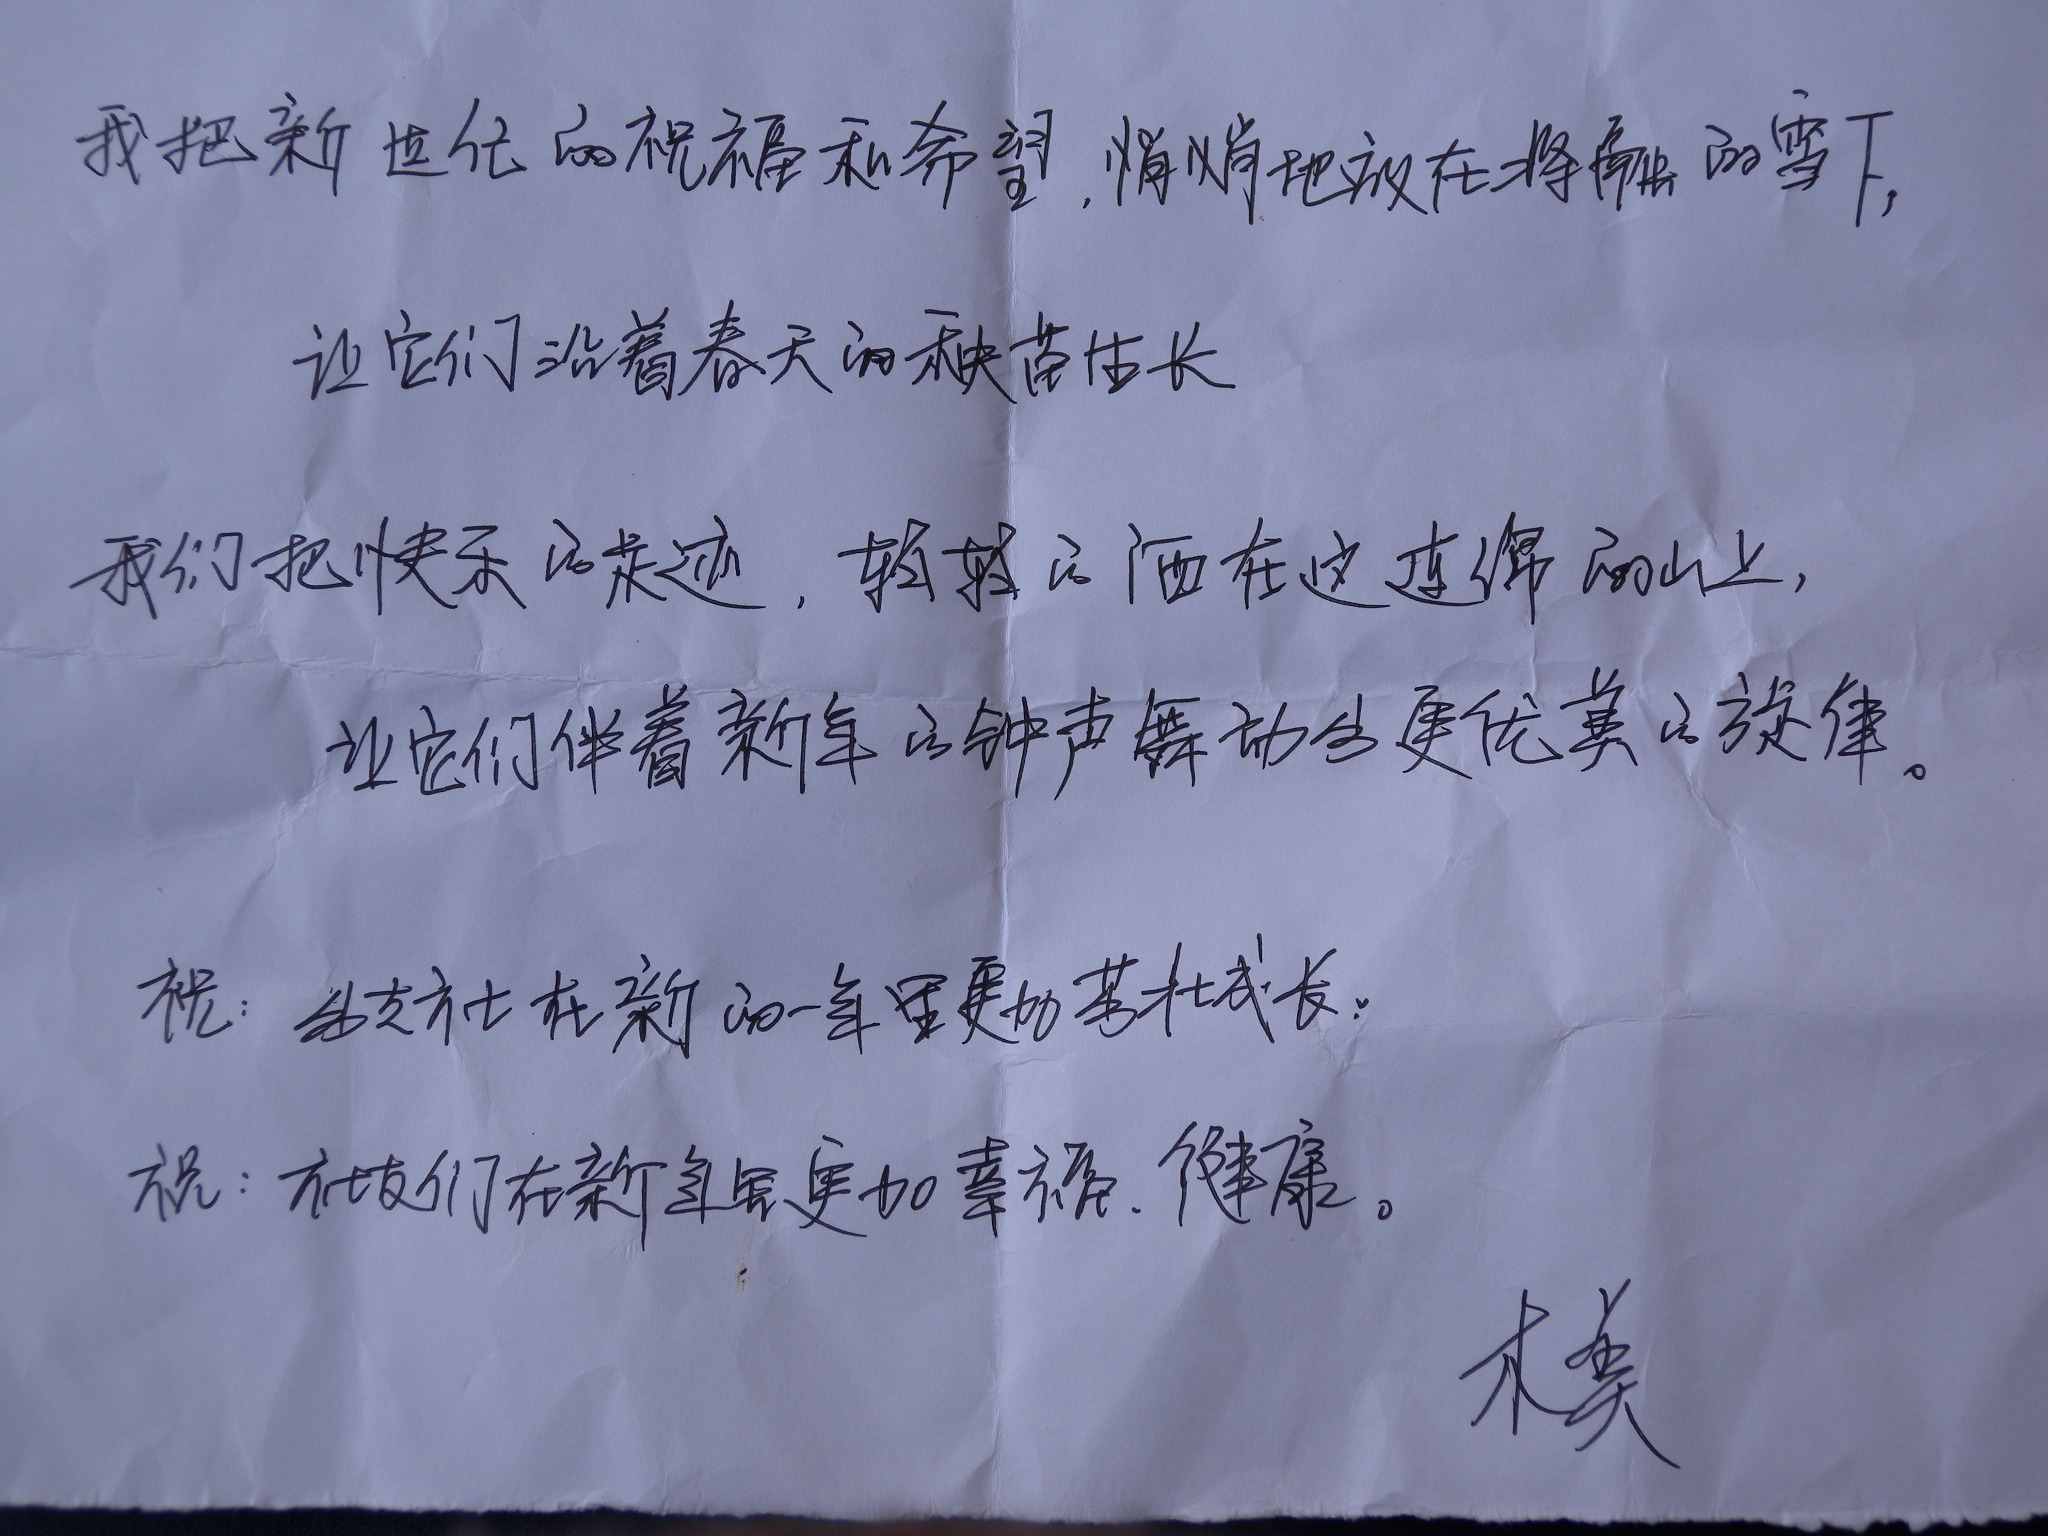 我把新世纪的祝福和希望，悄悄地放在将融的雪下，
让它们沿着春天的秧苗生长
我们把快乐的足迹，轻轻的洒在这连绵的山上，
让它们伴着新年的钟声舞动出更优美的旋律。
祝：支社在新的一年里更加茁壮成长；
祝：社友们在新年里更加幸福、健康。
木美